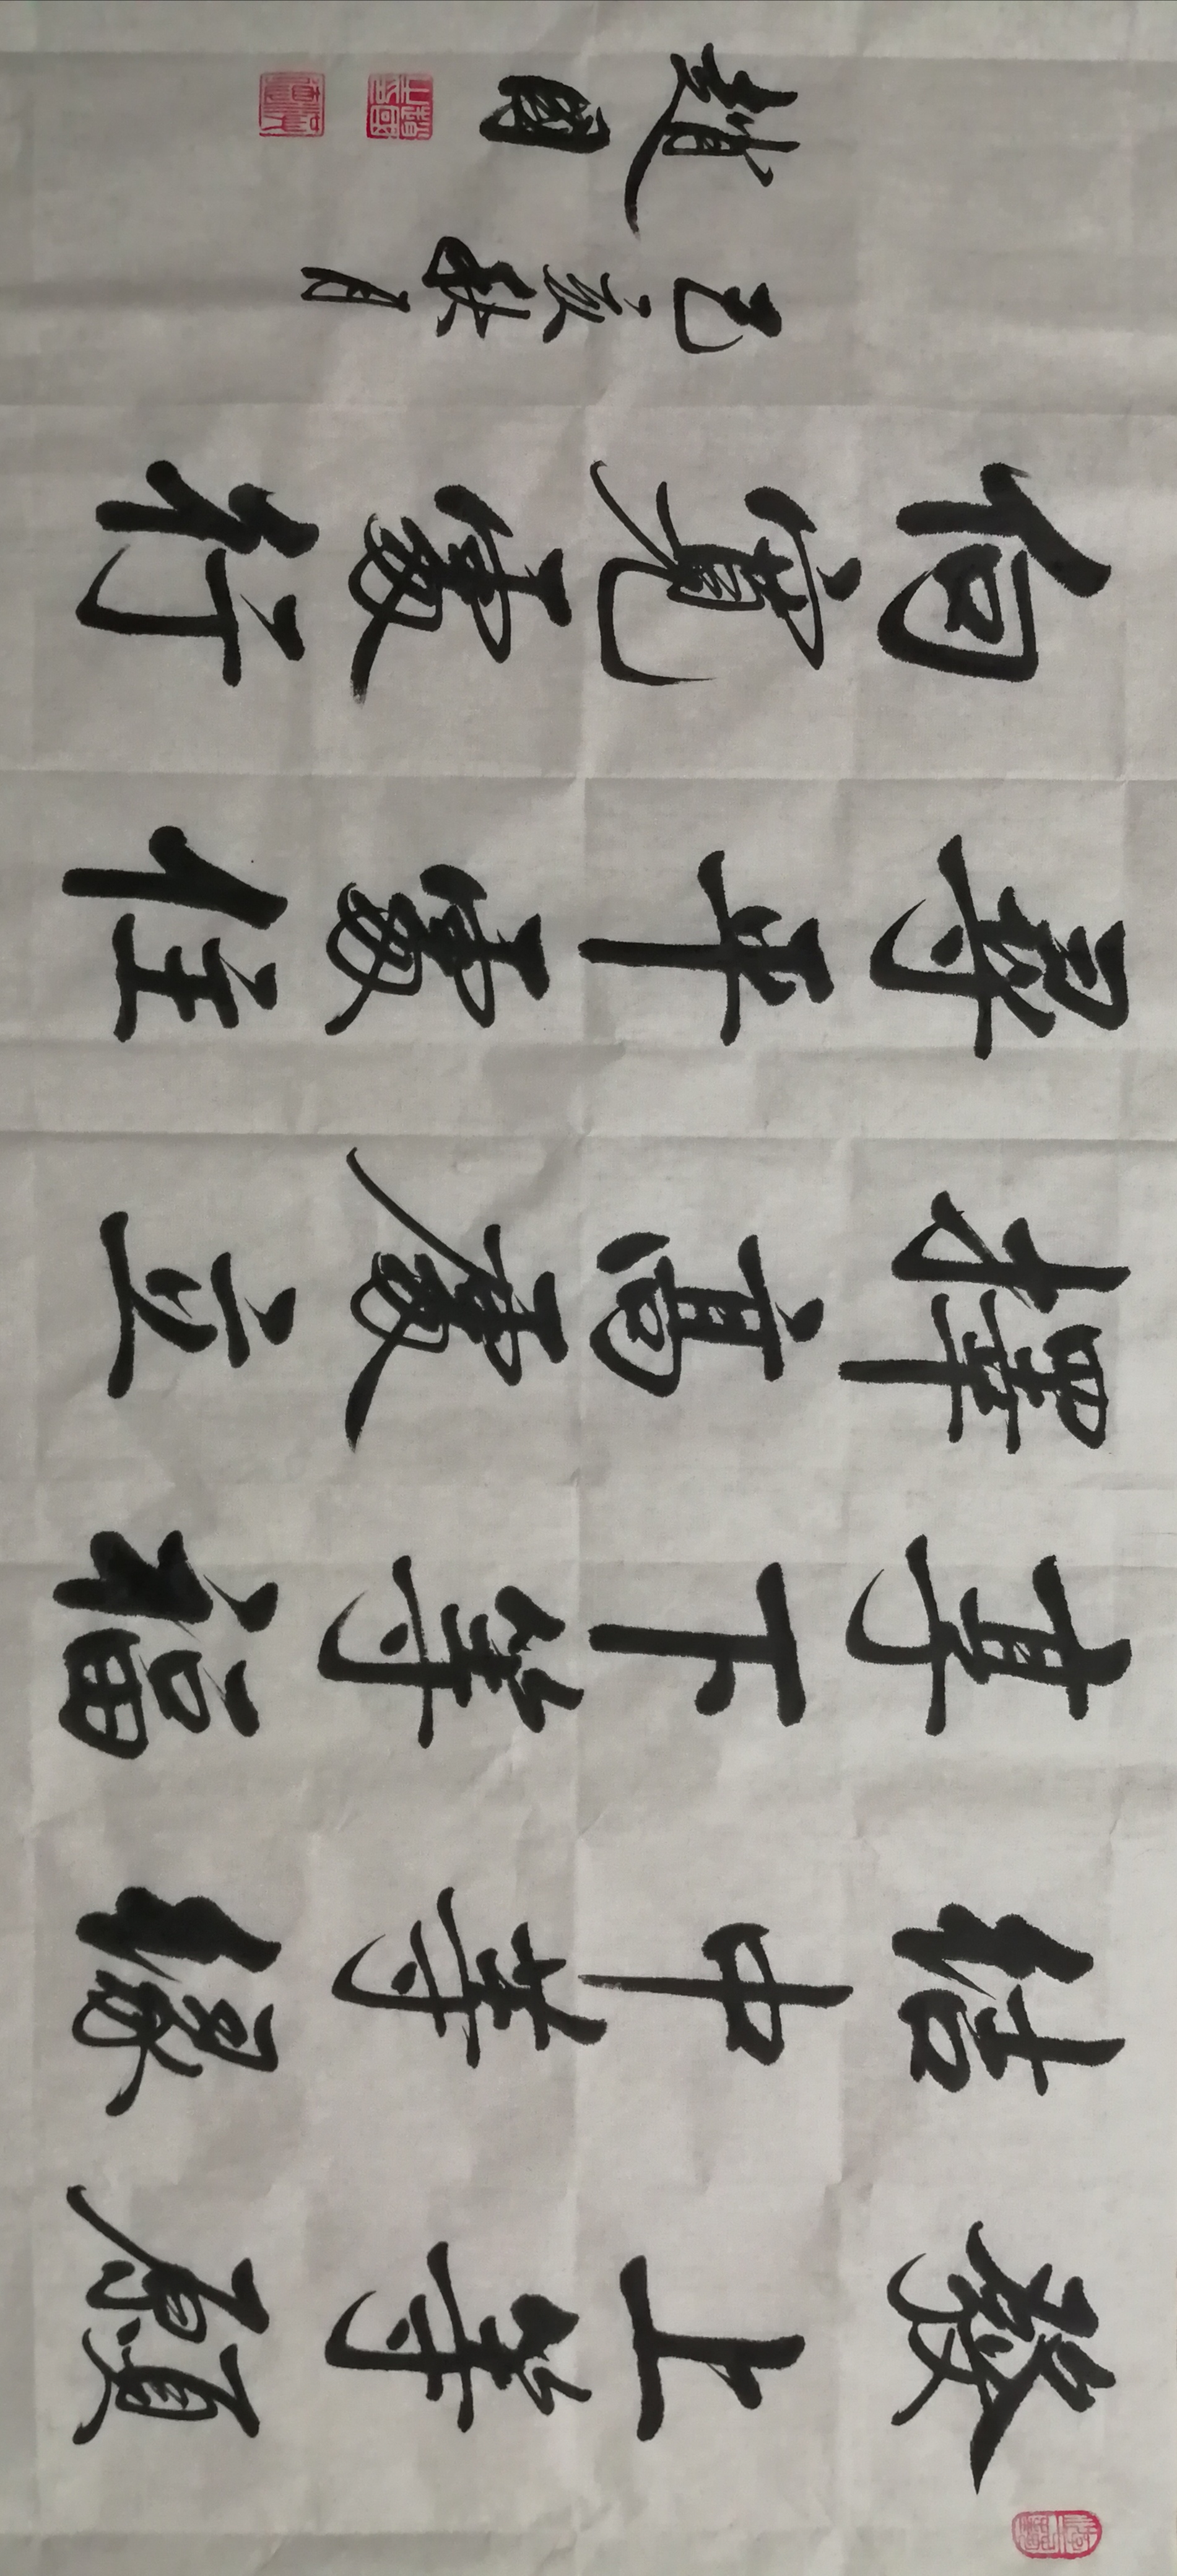 發上等願
結中等緣
享下等福
擇高處立
尋平處住
向寬處行
己亥秋月
趙